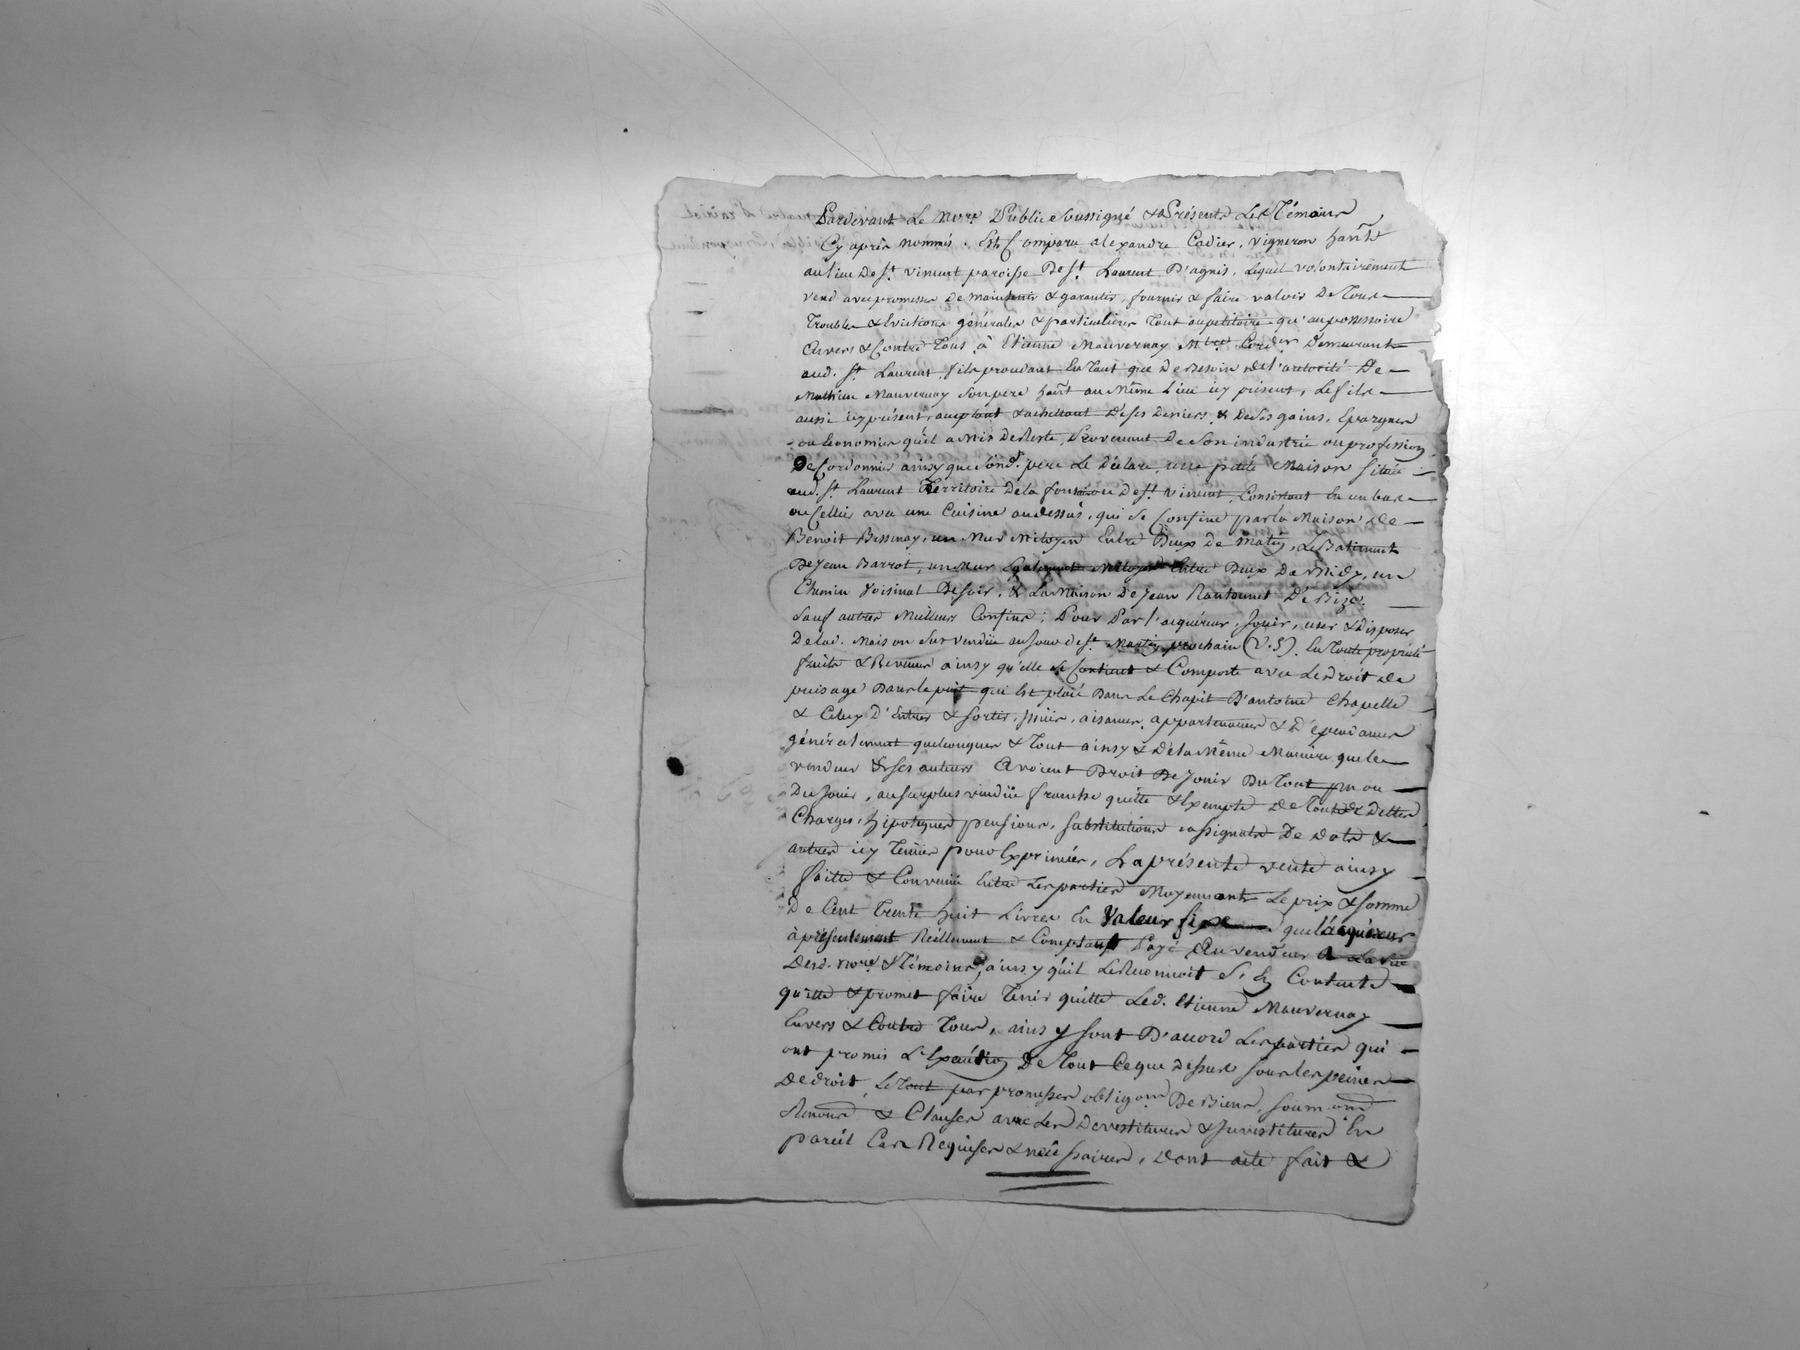 Pardevant Le Nore. Public soussigné & Présents Les Témoins
Cy après nommés. Est Comparu alexandre Cadier, vigneron hant.
au lieu de St. vincent paroisse De St. Laurent D'agnis, Lequel volontairement
vend avec promesse de maintenir & garantir, fournir & faire valoir De Tous
Troubles & Evictions générales & particulieres Tout au petitoire qu'au possessoire
Envers & Contre Tous, à Etienne Mauvernay Mtre. Cordier Demeurant
aud. St. Laurent, fils procédant En Tant que De Besoin de l'autorité De
Mathieu Mauvernay Son pere hant. au Même Lieu icy présent, Le fils
aussi icy présent, acceptant & achettant De ses Deniers & De ses gains, Epargnes
ou Economies qu'il a Mis De Reste, Provenant De Son industrie ou profession
De Cordonnier ainsy que Sond. pere Le Déclare, une petite Maison située
aud. St. Laurent Territoire De la fontaine De St. vincent, Consistant En un bas
ou Cellier avec une Cuisine au dessus, qui se Confine par la Maison de
Benoit Bessenay, un Mur Mitoyen Entre Deux de matin, Le Batiment
De Jean Barrot, un Mur Egalement Mitoyen Entre Deux De Midy, un
Chemin voisinal De soir, & La Maison De Jean Rantonnet De Bize.
Sauf autres Meilleurs Confins; Pour Par l'acquéreur, Jouir, user & disposer
De lad. Maison Sus vendüe au Jour de St. Martin prochain (v.s). En Toute propriété
fruits & Revenus ainsy qu'elle se Contient & Comporte avec Le droit de
puisage Dans le puit qui Est placé Dans Le Chapit D'antoine Chapelle
& Celuy D'Entrer & sortir, suite, aisances, appartenances & Dépendances
généralement quelconques & Tout ainsy & De la Même Maniere que le
vendeur & ses auteurs Avoient Droit De Jouir Du Tout pu ou
Du Jouir, au surplus vendüe franche quitte & Exempte De Toutes Dettes
Charges, hipoteques pensions, substitutions assignats De Dots &
autres icy Tenües pour Exprimées, La présente vente ainsy
faitte & Convenüe Entre Les parties Moyennant Le prix & somme
De Cent Trente huit Livres En valeur fixe que l'acquéreur
à présentement Réellement & Comptant Payé Au vendeur A La vüe
Desd. nore. & Témoins, ainsy qu'il Le Reconnoit S'En Contente
quitte & promet faire Tenir quitte Led. Etienne Mauvernay
Envers & Contre Tous, ainsy sont D'accord Les parties qui
ont promis L'Exécution De Tout Ce que Dessus sous Les peines
De droit, Le Tout par promesses obligons. De Biens, soumons.
Renons. & Clauses avec Les Devestitures & Investitures En
pareil Cas Requises & nécéssaires, Dont acte fait &